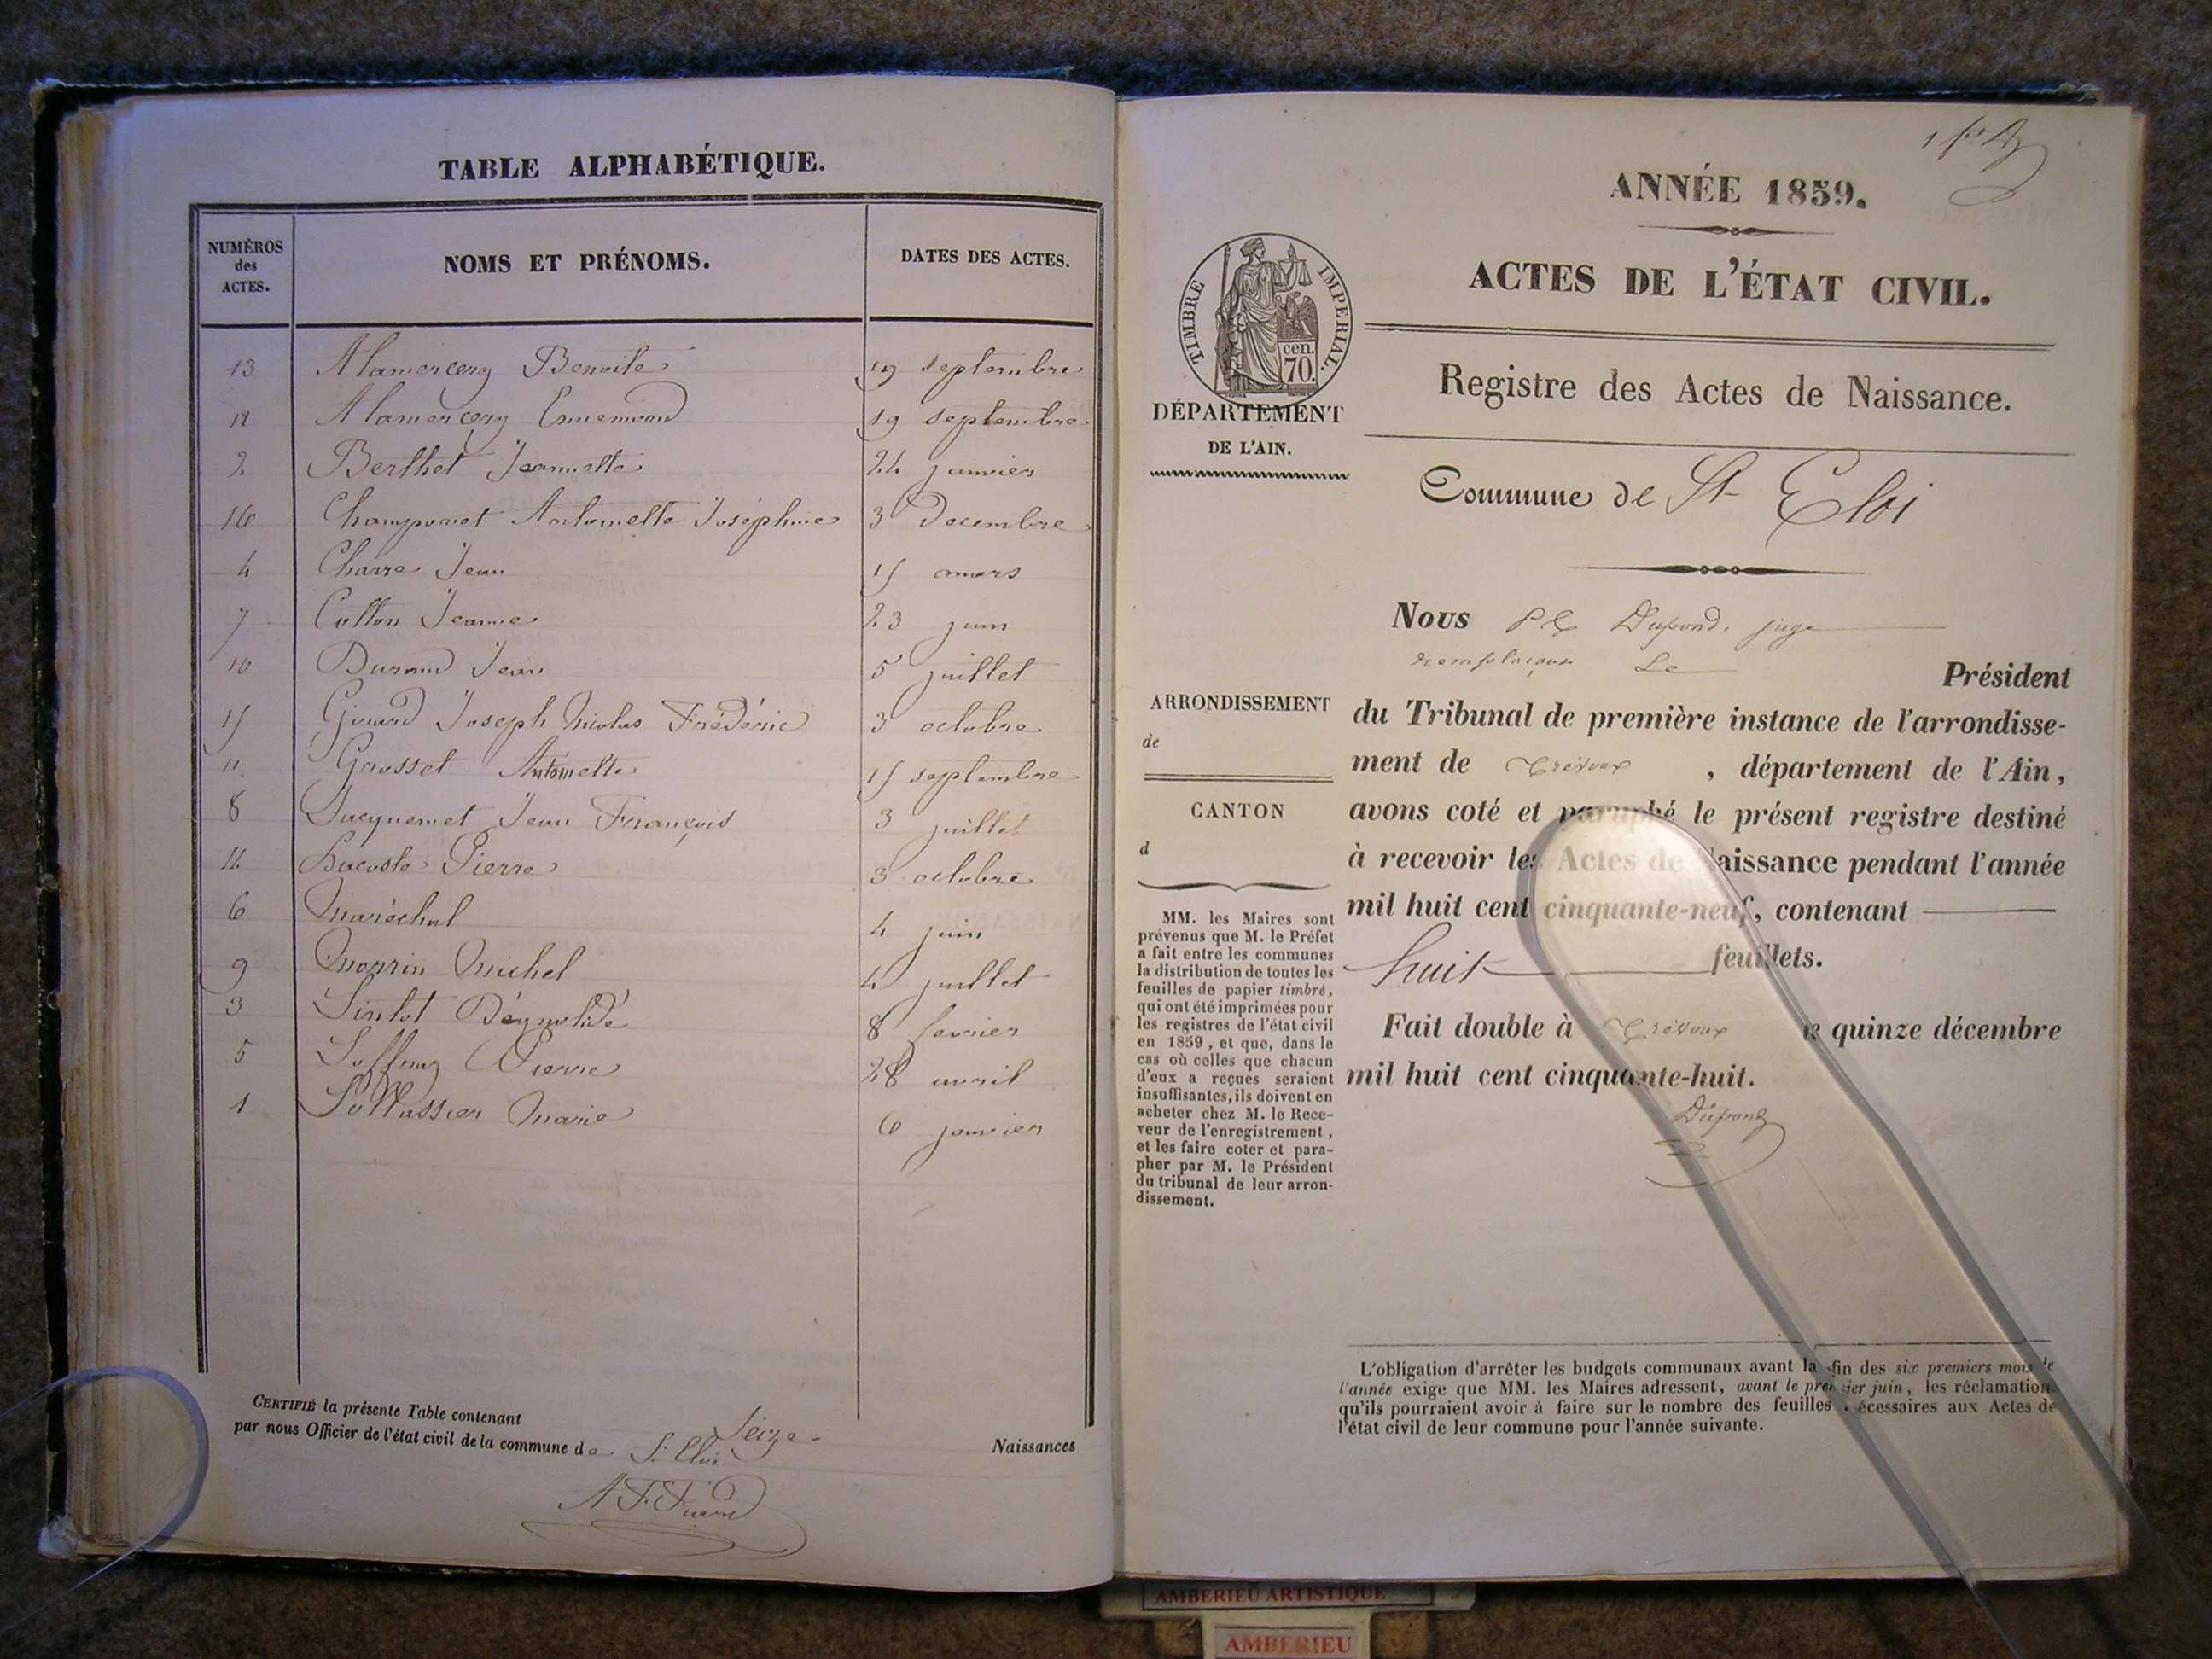 TABLE ALPHABÉTIQUE.
NUMÉROS des ACTES. NOMS ET PRÉNOMS. DATES DES ACTES.
13 Alamercery Benoite 19 septembre
12 Alamercery Ennemond 19 septembre
2 Berthet Jeannette 24 janvier
16 Champonnet Antoinette Joséphine 3 Decembre
4 Charre Jean 15 mars
7 Cotton Jeanne 23 juin
10 Durand Jean 5 juillet
15 Girard Joseph Nicolas Frédéric 3 octobre
11 Grosset Antoinette 15 septembre
8 Jacquemet Jean François 3 juillet
14 Lacoste Pierre 3 octobre
6 Maréchal 4 juin
9 Monnin Michel 4 juillet
3 8 fevrier
5 Pierre 28 avril
1 Marie 6 janvier
CERTIFIÉ la présente Table contenant Seize Naissances
par nous Officier de l'état civil de la commune de St. Eloi
ANNÉE 1859.
ACTES DE L'ÉTAT CIVIL.
TIMBRE IMPERIAL.
cen. 70.
DÉPARTEMENT
DE L'AIN.
Registre des Actes de Naissance.
Commune de St Eloi
Nous Dupond, juge
remplaçant Le Président
ARRONDISSEMENT
de
CANTON
d
du Tribunal de première instance de l'arrondisse-
ment de Trévoux, département de l'Ain,
avons coté et paraphé le présent registre destiné
à recevoir les Actes de Naissance pendant l'année
mil huit cent cinquante-neuf, contenant
huit feuillets.
Fait double à Trévoux le quinze décembre
mil huit cent cinquante-huit.
Dupond
MM. les Maires sont
prévenus que M. le Préfet
a fait entre les communes
la distribution de toutes les
feuilles de papier timbré,
qui ont été imprimées pour
les registres de l'état civil
en 1859, et que, dans le
cas où celles que chacun
d'eux a reçues seraient
insuffisantes, ils doivent en
acheter chez M. le Rece-
veur de l'enregistrement,
et les faire coter et para-
pher par M. le Président
du tribunal de leur arron-
dissement.
L'obligation d'arrêter les budgets communaux avant la fin des six premiers mois de
l'année exige que MM. les Maires adressent, avant le premier juin, les réclamations
qu'ils pourraient avoir à faire sur le nombre des feuilles nécessaires aux Actes de
l'état civil de leur commune pour l'année suivante.
AMBERIEU ARTISTIQUE
AMBERIEU